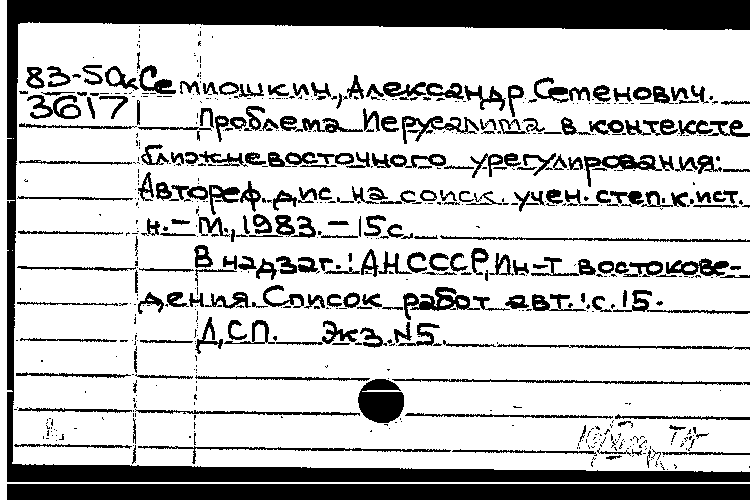 83-50к Семиошкин, Александр Семенович.
3617
Проблема Иерусалима в контексте
ближневосточного урегулирования:
Автореф. дис. на соиск. учен. степ. к. ист.
н. - М., 1983. - 15 с.
В надзаг.: АН СССР, Ин-т востокове-
дения. Список работ авт.: с. 15.
Д,СП. Экз. №5.